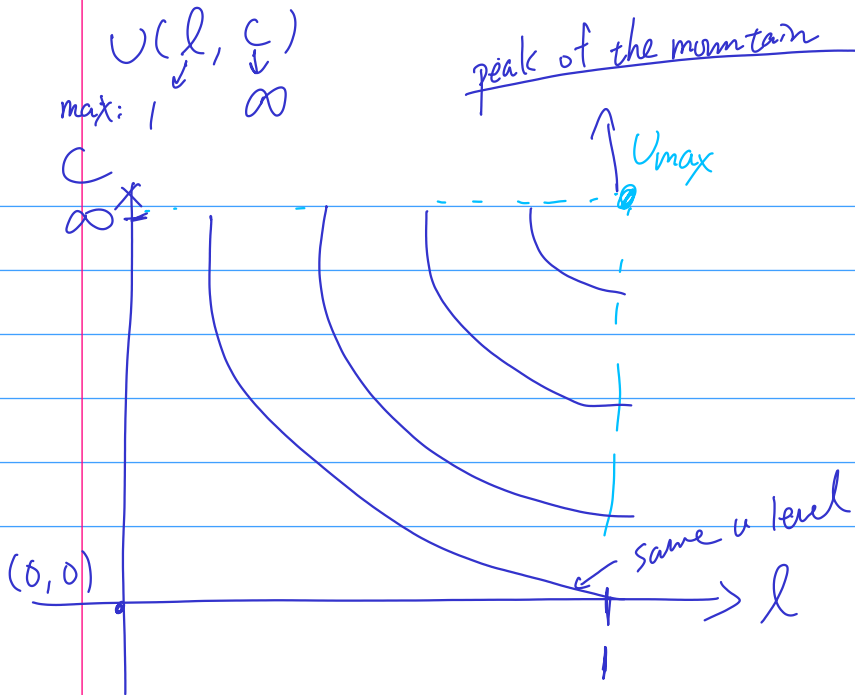 U(l, c)
peak of the mountain
max: 1 ∞
Umax
C
∞
same u level
(0,0)
l
1